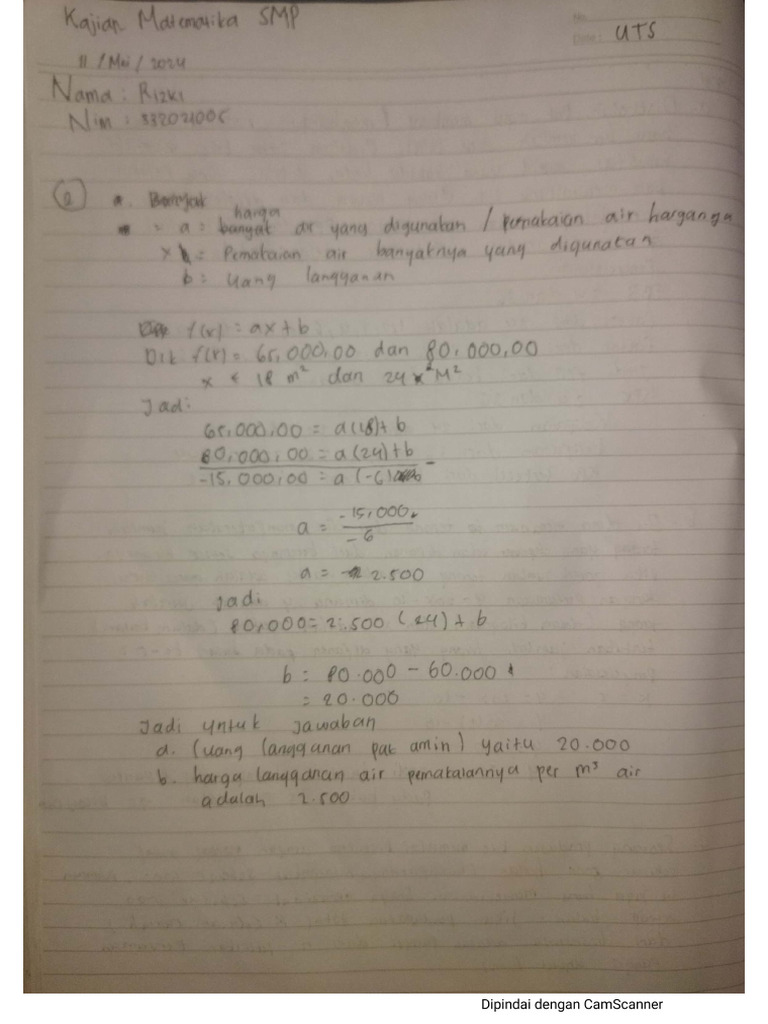 Kajian Matematika SMP
No.
Date: UTS
11 / Mei / 2024
Nama : Rizki
Nim : 332021006
2 a. Banyak
= a = banyak harga air yang digunakan / pemakaian air harganya
x = Pemakaian air banyaknya yang digunakan
b = Uang langganan
f(x) = ax + b
Dik f(x) = 65.000,00 dan 80.000,00
x = 18 m² dan 24 M²
Jadi:
65.000,00 = a(18) + b
80.000,00 = a(24) + b
-15.000,00 = a (-6) -
a = -15.000
-6
a = 2.500
Jadi
80.000 = 2.500 (24) + b
b = 80.000 - 60.000
= 20.000
Jadi untuk jawaban
a. (uang langganan pak amin) yaitu 20.000
b. harga langganan air pemakaiannya per m³ air
adalah 2.500
Dipindai dengan CamScanner